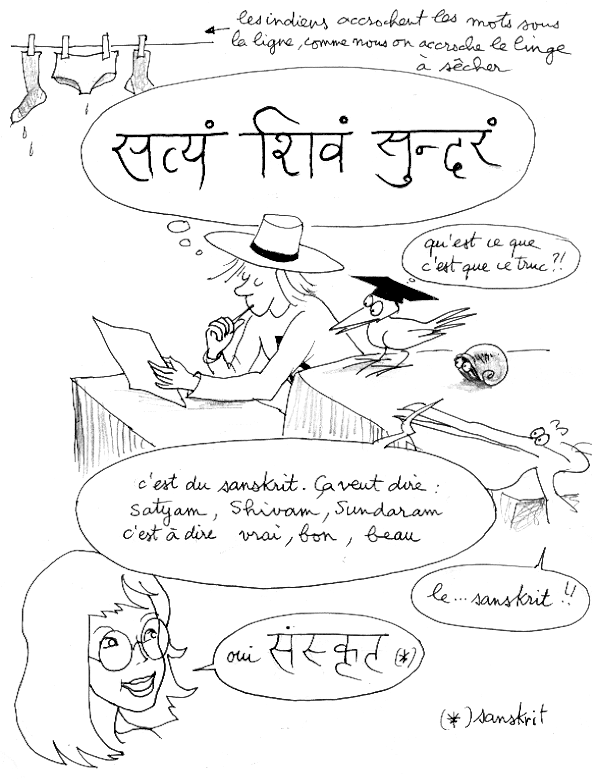 les indiens accrochent les mots sous
la ligne, comme nous on accroche le linge
à sécher
सत्यं शिवं सुन्दरं
qu'est ce que
c'est que ce truc?!
c'est du sanskrit. Ça veut dire :
Satyam, Shivam, Sundaram
c'est à dire vrai, bon, beau
le... sanskrit !!
oui संस्कृत (*)
(*) sanskrit